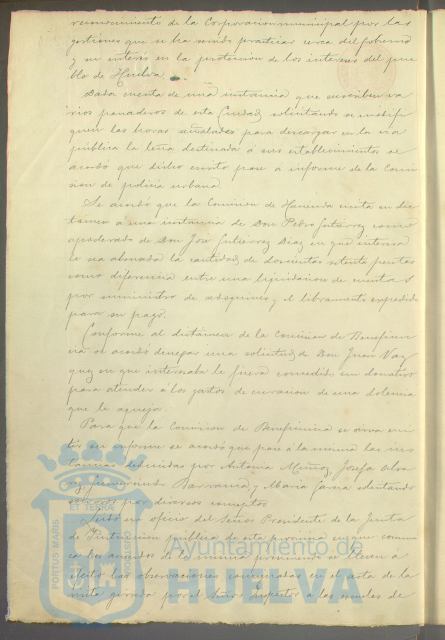 reconocimiento de la Corporacion municipal por las
gestiones que se ha servido practicar cerca del Gobierno
y su interés en la proteccion de los intereses del pue
blo de Huelva.
Dada cuenta de una instancia que suscriben va
rios panaderos de esta Ciudad, solicitando se modifi
quen las horas señaladas para descargar en la via
pública la leña destinada á sus establecimientos se
acordó que dicho escrito pase á informe de la Comi
sion de policia urbana.
Se acordó que la Comision de Hacienda emita su dic
tamen á una instancia de Don Pedro Gutierrez como
apoderado de Don José Gutierrez Diaz en que interesa
le sea abonada la cantidad de doscientas setenta pesetas
como diferencia entre una liquidacion de cuenta
por suministro de adoquines y el libramiento expedido
para su pago.
Conforme al dictámen de la Comision de Beneficen
cia se acordó denegar una solicitud de Don Juan Vaz
quez en que interesaba le fuera concedido un donativo
para atender á los gastos de curacion de una dolencia
que le aqueja.
Para que la Comision de Beneficencia se sirva emi
tir su informe se acordó que pase á la misma las ins
tancias deducidas por Antonia Muñoz, Josefa Alva
Barranco, y Maria Garcia solicitando
socorros por diversos conceptos.
Leido un oficio del Señor Presidente de la Junta
de Instruccion pública de esta provincia en que comuni
ca los acuerdos de la misma para que se lleven á
efecto las observaciones consignadas en el acta de la
visita girada por el Señor Inspector á las escuelas de
PORTUS MARIS
ET TERRÆ
CUSTODIA
Ayuntamiento de
HUELVA